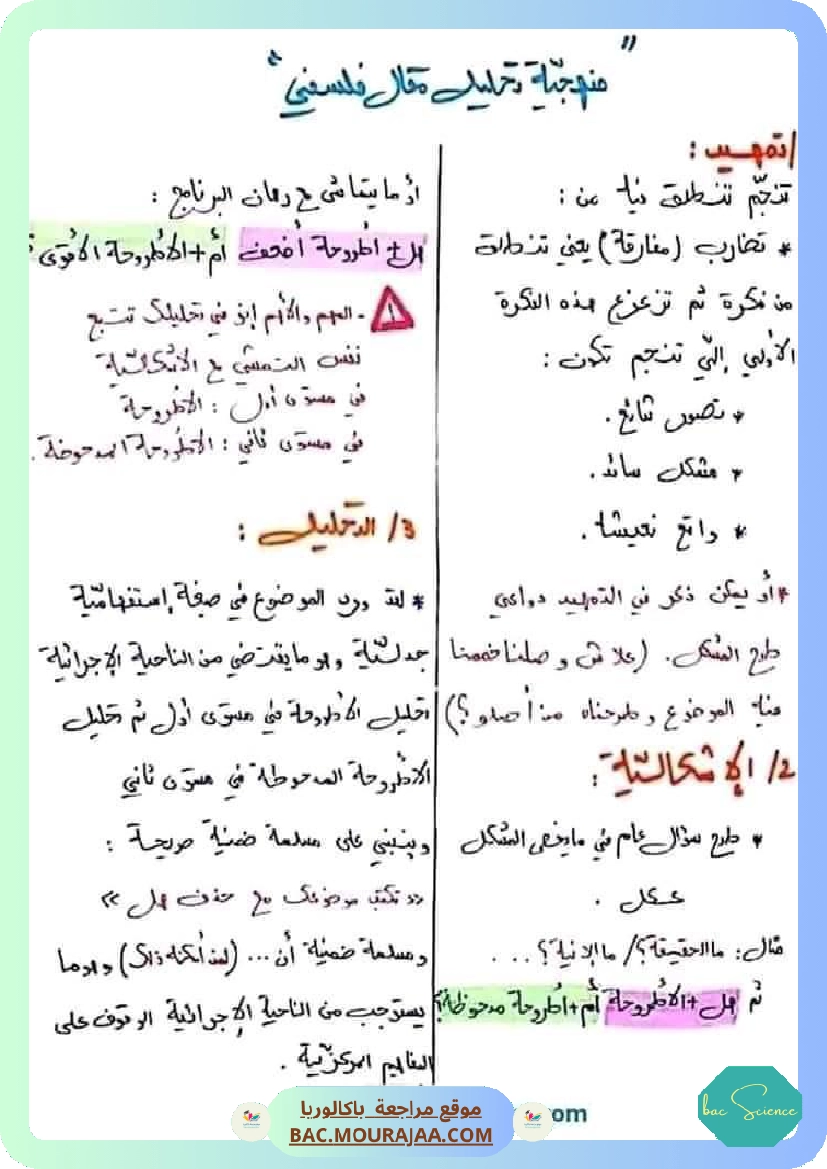 "منهجيّة تحليل مقال فلسفي"
1/ تمهيد :
تنجّم تنطلق فيه من :
* تضارب (مفارقة) يعني تنطلق
من فكرة ثم تزعزع هذه الفكرة
الأولى إلّي تنجم تكون :
* تصور شائع .
* مشكل سائد .
* واقع نعيشه .
* أو يمكن ذكر في التمهيد دواعي
طرح المشكل . (علاش وصلنا خممنا
فيه الموضوع وطرحناه من أصلو ؟)
2/ الإشكاليّة :
* طرح سؤال عام في ما يخص المشكل
ككل .
مثال : ما الحقيقة ؟ / ما الإنية ؟ . . .
ثم هل + الأطروحة أم + أطروحة مدحوظة ؟
أو ما يتماشى مع رهان البرنامج :
هل + أطروحة أضعف أم + الأطروحة الأقوى
! - المهم والأهم إنو في تحليلك تتبع
نفس التمشي مع الإشكاليّة
في مستوى أول : الأطروحة
في مستوى ثاني : الأطروحة المدحوضة .
3/ التحليل :
* لقد ورد الموضوع في صيغة إستفهاميّة
جدليّة وهو ما يقتضي من الناحية الإجرائية
تحليل الأطروحة في مستوى أول ثم تحليل
الأطروحة المدحوظة في مستوى ثاني
وينبني على مسلمة ضمنية صريحة :
« تكتب موضوعك مع حذف هل »
ومسلمة ضمنية أن ... (ليه ذاك) وهو ما
يستوجب من الناحية الإجرائية الوقوف على
المفاهيم المركزيّة .
موقع مراجعة باكالوريا
BAC.MOURAJAA.COM
om
bac Science